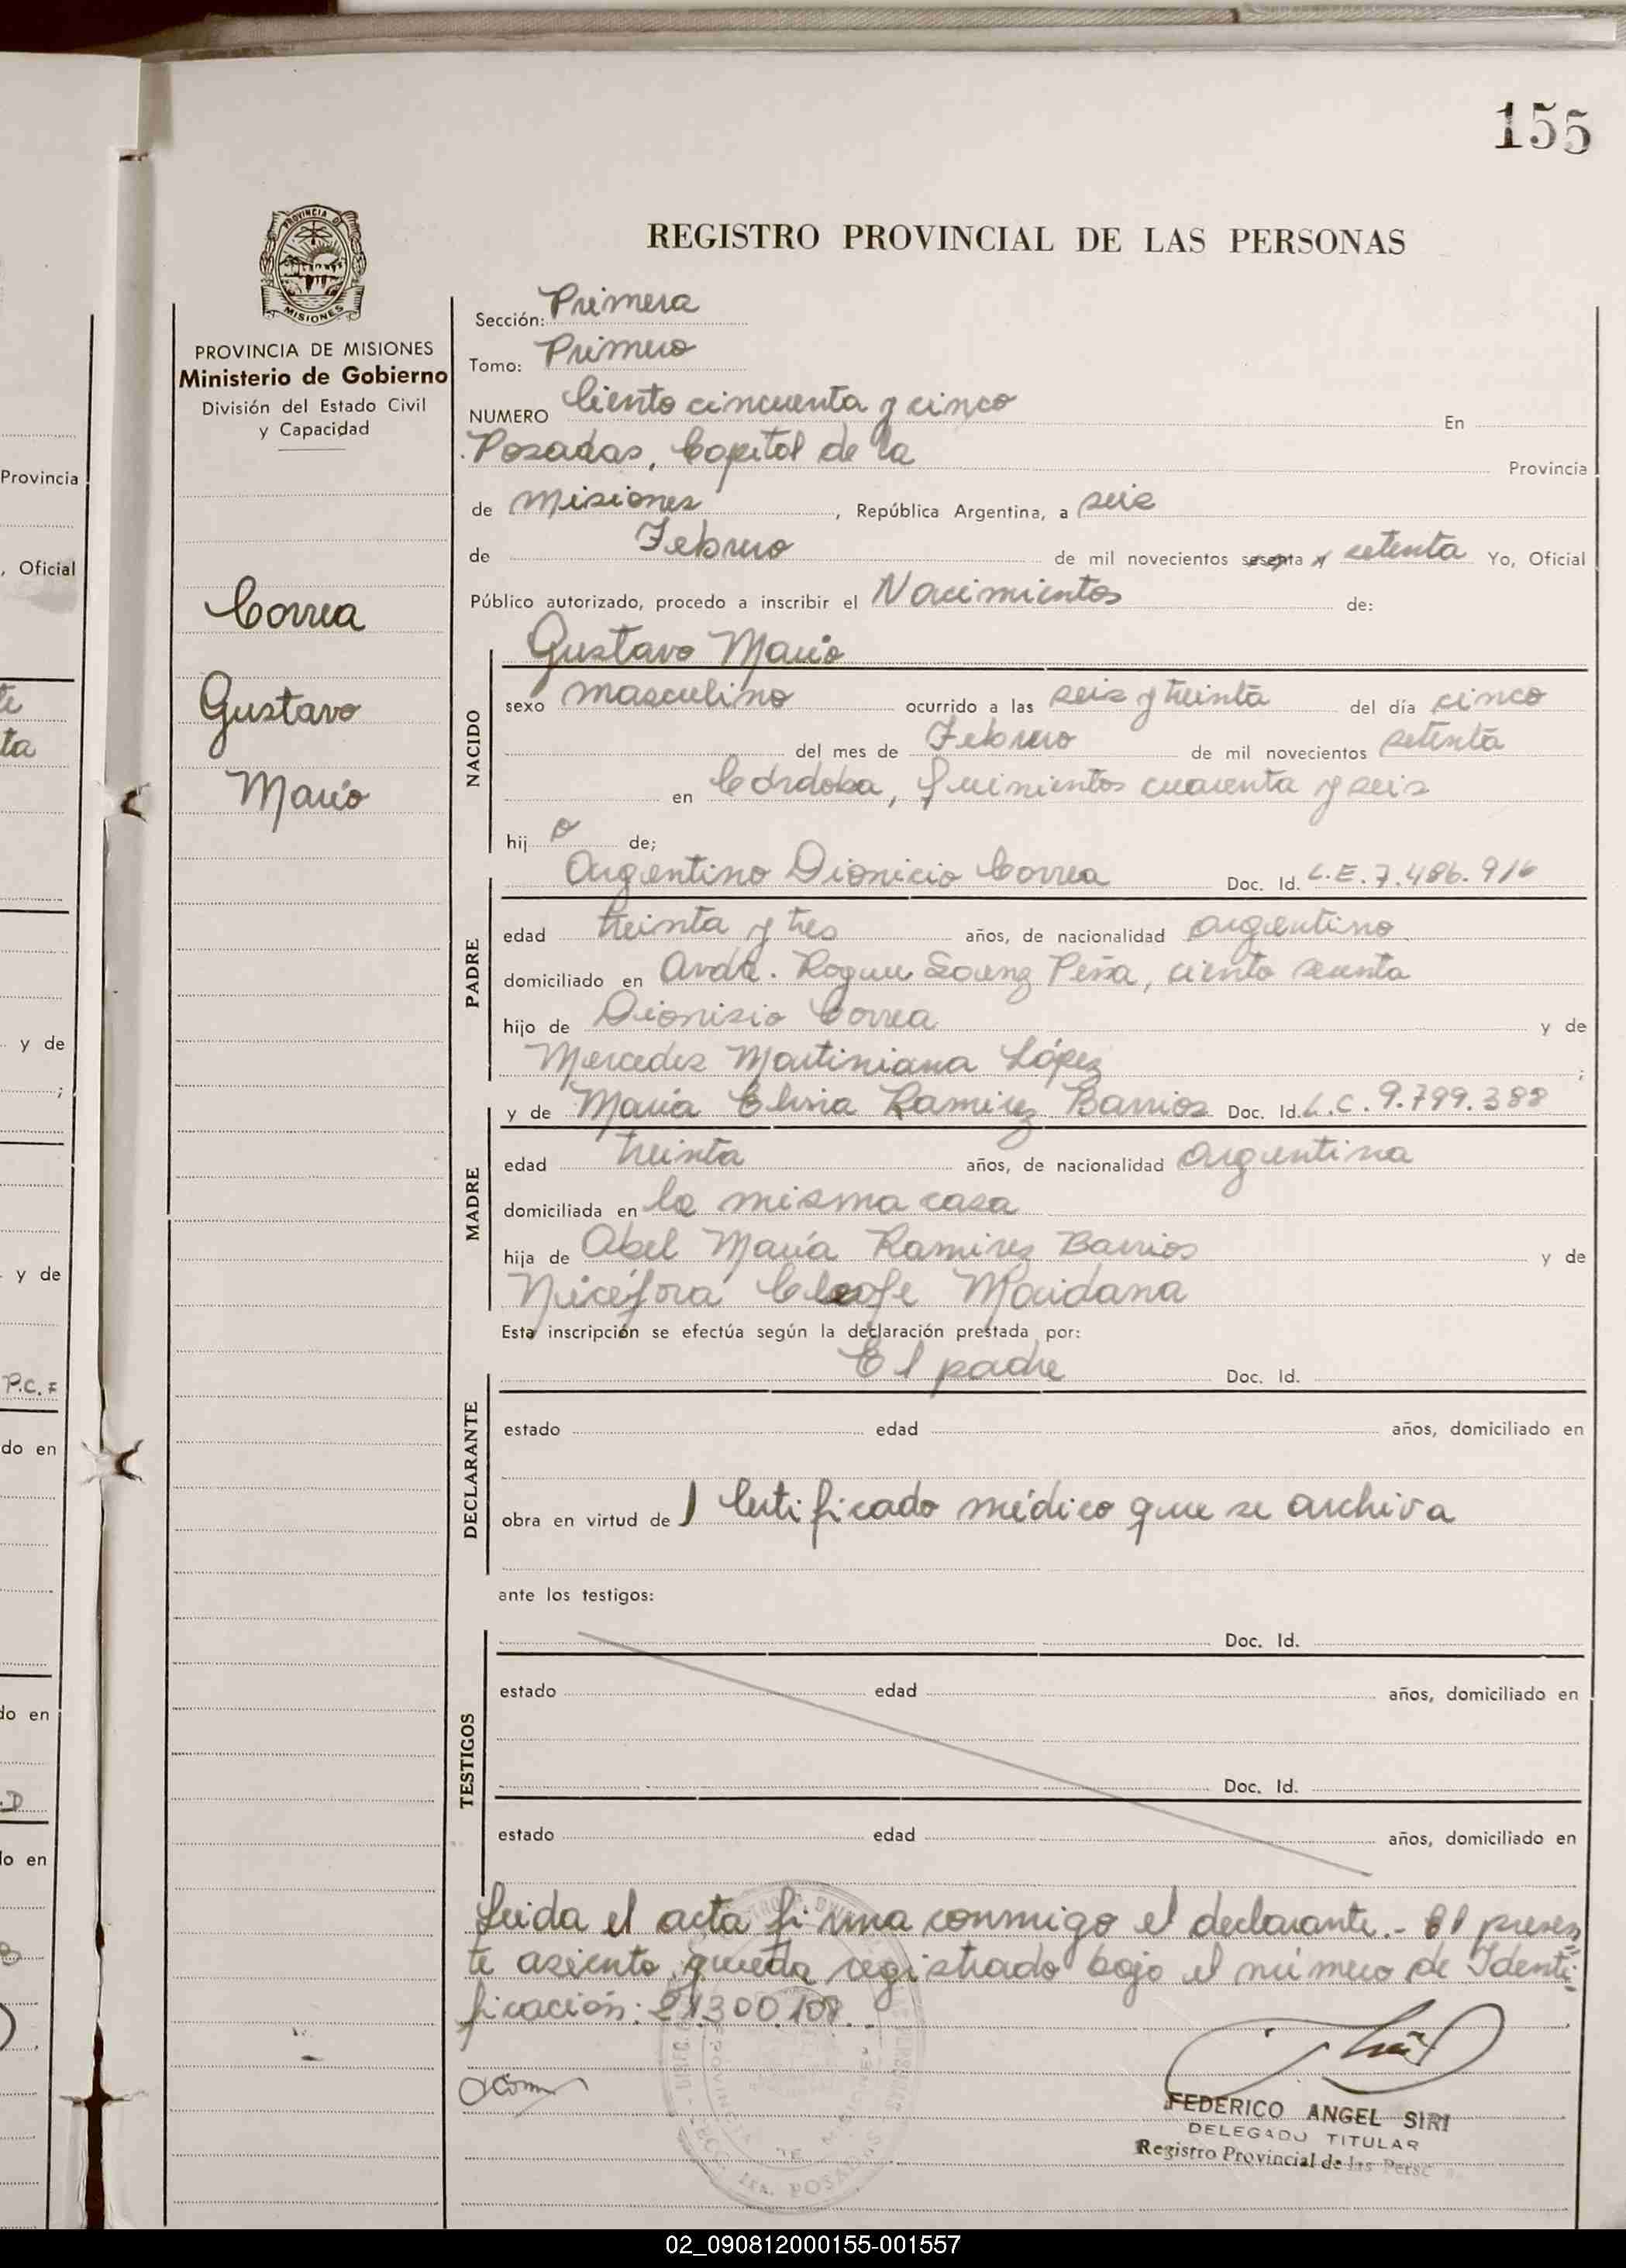 155
PROVINCIA DE
MISIONES
PROVINCIA DE MISIONES
Ministerio de Gobierno
División del Estado Civil
y Capacidad
Correa
Gustavo
Mario
REGISTRO PROVINCIAL DE LAS PERSONAS
Sección: Primera
Tomo: Primero
NUMERO Ciento cincuenta y cinco En
Posadas, Capital de la Provincia
de Misiones, República Argentina, a seis
de Febrero de mil novecientos sesenta y setenta Yo, Oficial
Público autorizado, procedo a inscribir el Nacimientos de:
NACIDO
Gustavo Mario
sexo masculino ocurrido a las seis y treinta del día cinco
del mes de Febrero de mil novecientos setenta
en Córdoba, quinientos cuarenta y seis
hijo de;
PADRE
Argentino Dionicio Correa Doc. Id. L.E. 7.486.916
edad treinta y tres años, de nacionalidad argentino
domiciliado en Avda. Roque Saenz Peña, ciento sesenta
hijo de Dionisio Correa y de
Mercedes Martiniana López ;
MADRE
y de María Elvira Ramirez Barrios Doc. Id. L.C. 9.799.388
edad treinta años, de nacionalidad argentina
domiciliada en la misma casa
hija de Abel María Ramirez Barrios y de
Nicéfora Cleofe Maidana
Esta inscripción se efectúa según la declaración prestada por:
DECLARANTE
El padre Doc. Id.
estado edad años, domiciliado en
obra en virtud de Certificado médico que se archiva
ante los testigos:
TESTIGOS
Doc. Id.
estado edad años, domiciliado en
Doc. Id.
estado edad años, domiciliado en
Leida el acta firma conmigo el declarante.- El presen=
te asiento queda registrado bajo el número de Identi=
ficación: 21.300.108..
FEDERICO ANGEL SIRI
DELEGADO TITULAR
Registro Provincial de las Perso
PROVINCIA DE MISIONES
POSADAS
Provincia
, Oficial
te
ta
y de
;
y de
P.C. F
do en
do en
.D
do en
02_090812000155-001557